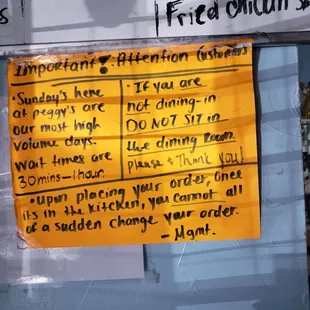 Fried chicken
Important! : Attention Customers
· Sunday's here
at peggy's are
our most high
volume days.
wait times are
30mins-1hour.
· If you are
not dining-in
DO NOT SIT in
the dining room
please & Thank you!
· upon placing your order, once
its in the kitchen, you cannot all
of a sudden change your order.
- Mgmt.